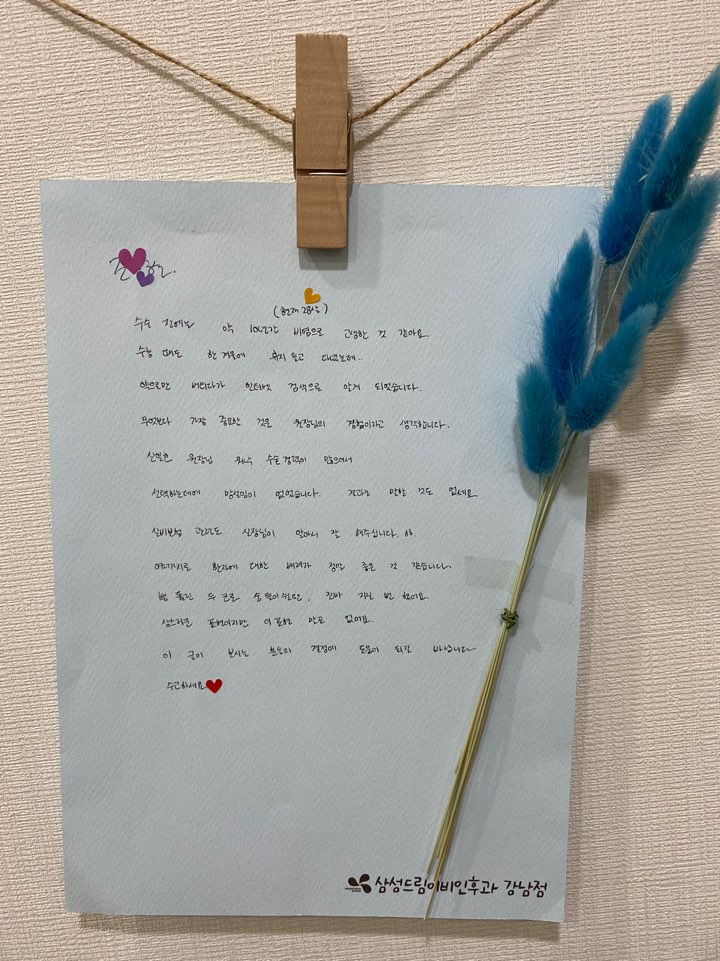 (현재 28살)
수술 전에는 약 10년간 비염으로 고생한 것 같아요.
수능 때도 한 겨울에 휴지 들고 다녔는데..
약으로만 버티다가 인터넷 검색으로 알게 되었습니다.
무엇보다 가장 중요한 것은 원장님의 경험이라고 생각합니다.
원장님 워낙 수술경력이 많으셔서
선택하는데에 망설임이 없었습니다. 결과는 말할 것도 없네요
실비보험 관련도 실장님이 알아서 잘 해주십니다. 하.
여러가지로 환자에 대한 배려가 정말 좋은 것 같습니다.
뻥 뚫린 두 코로 숨 쉬어요. 진짜
표현이지만 이 표현 말고 없어요.
이 글이 보시는 분들의 결정에 도움이 되길 바랍니다
수고하세요
삼성드림이비인후과 강남점